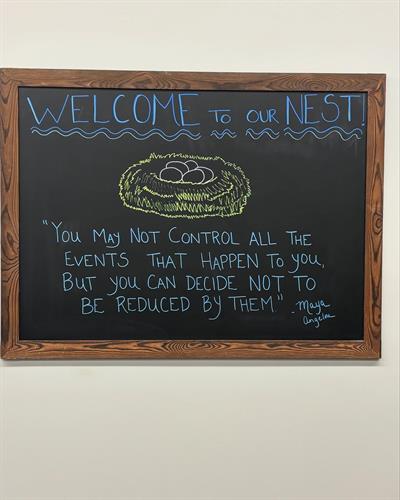 WELCOME TO OUR NEST!
"YOU MAY NOT CONTROL ALL THE
EVENTS THAT HAPPEN TO YOU,
BUT YOU CAN DECIDE NOT TO
BE REDUCED BY THEM"
-Maya
Angelou